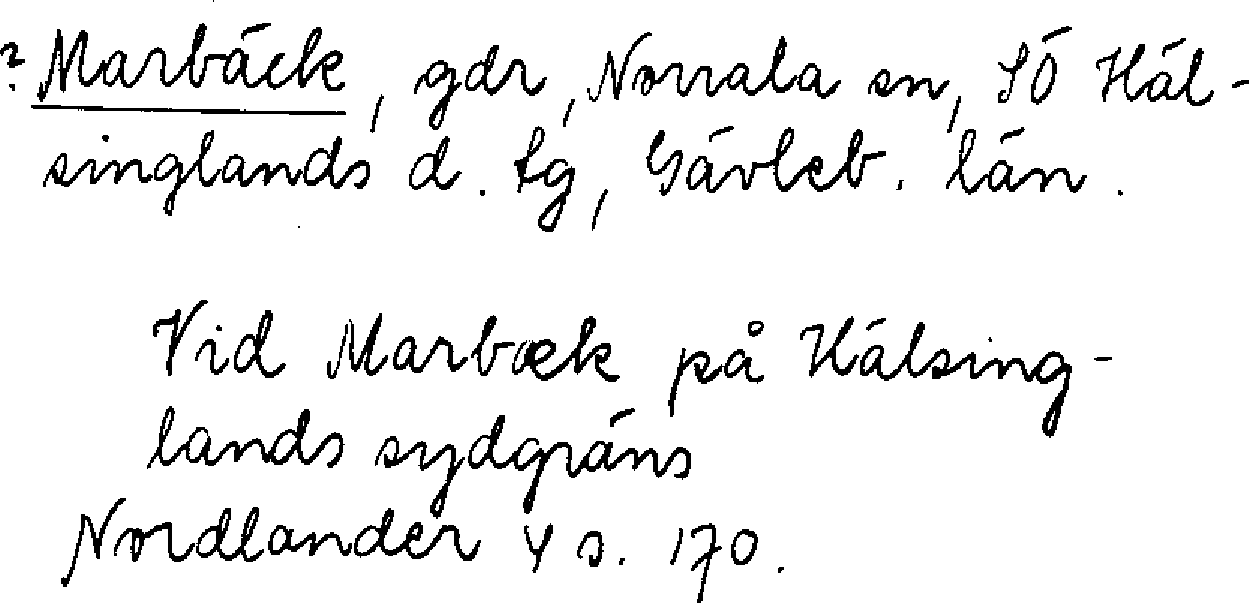 ? Marbäck, gdr, Norrala sn, SÖ Häl-
singlands d. tg, Gävleb. län.
Vid Marbæk på Hälsing-
lands sydgräns
Nordlander 4 s. 170.